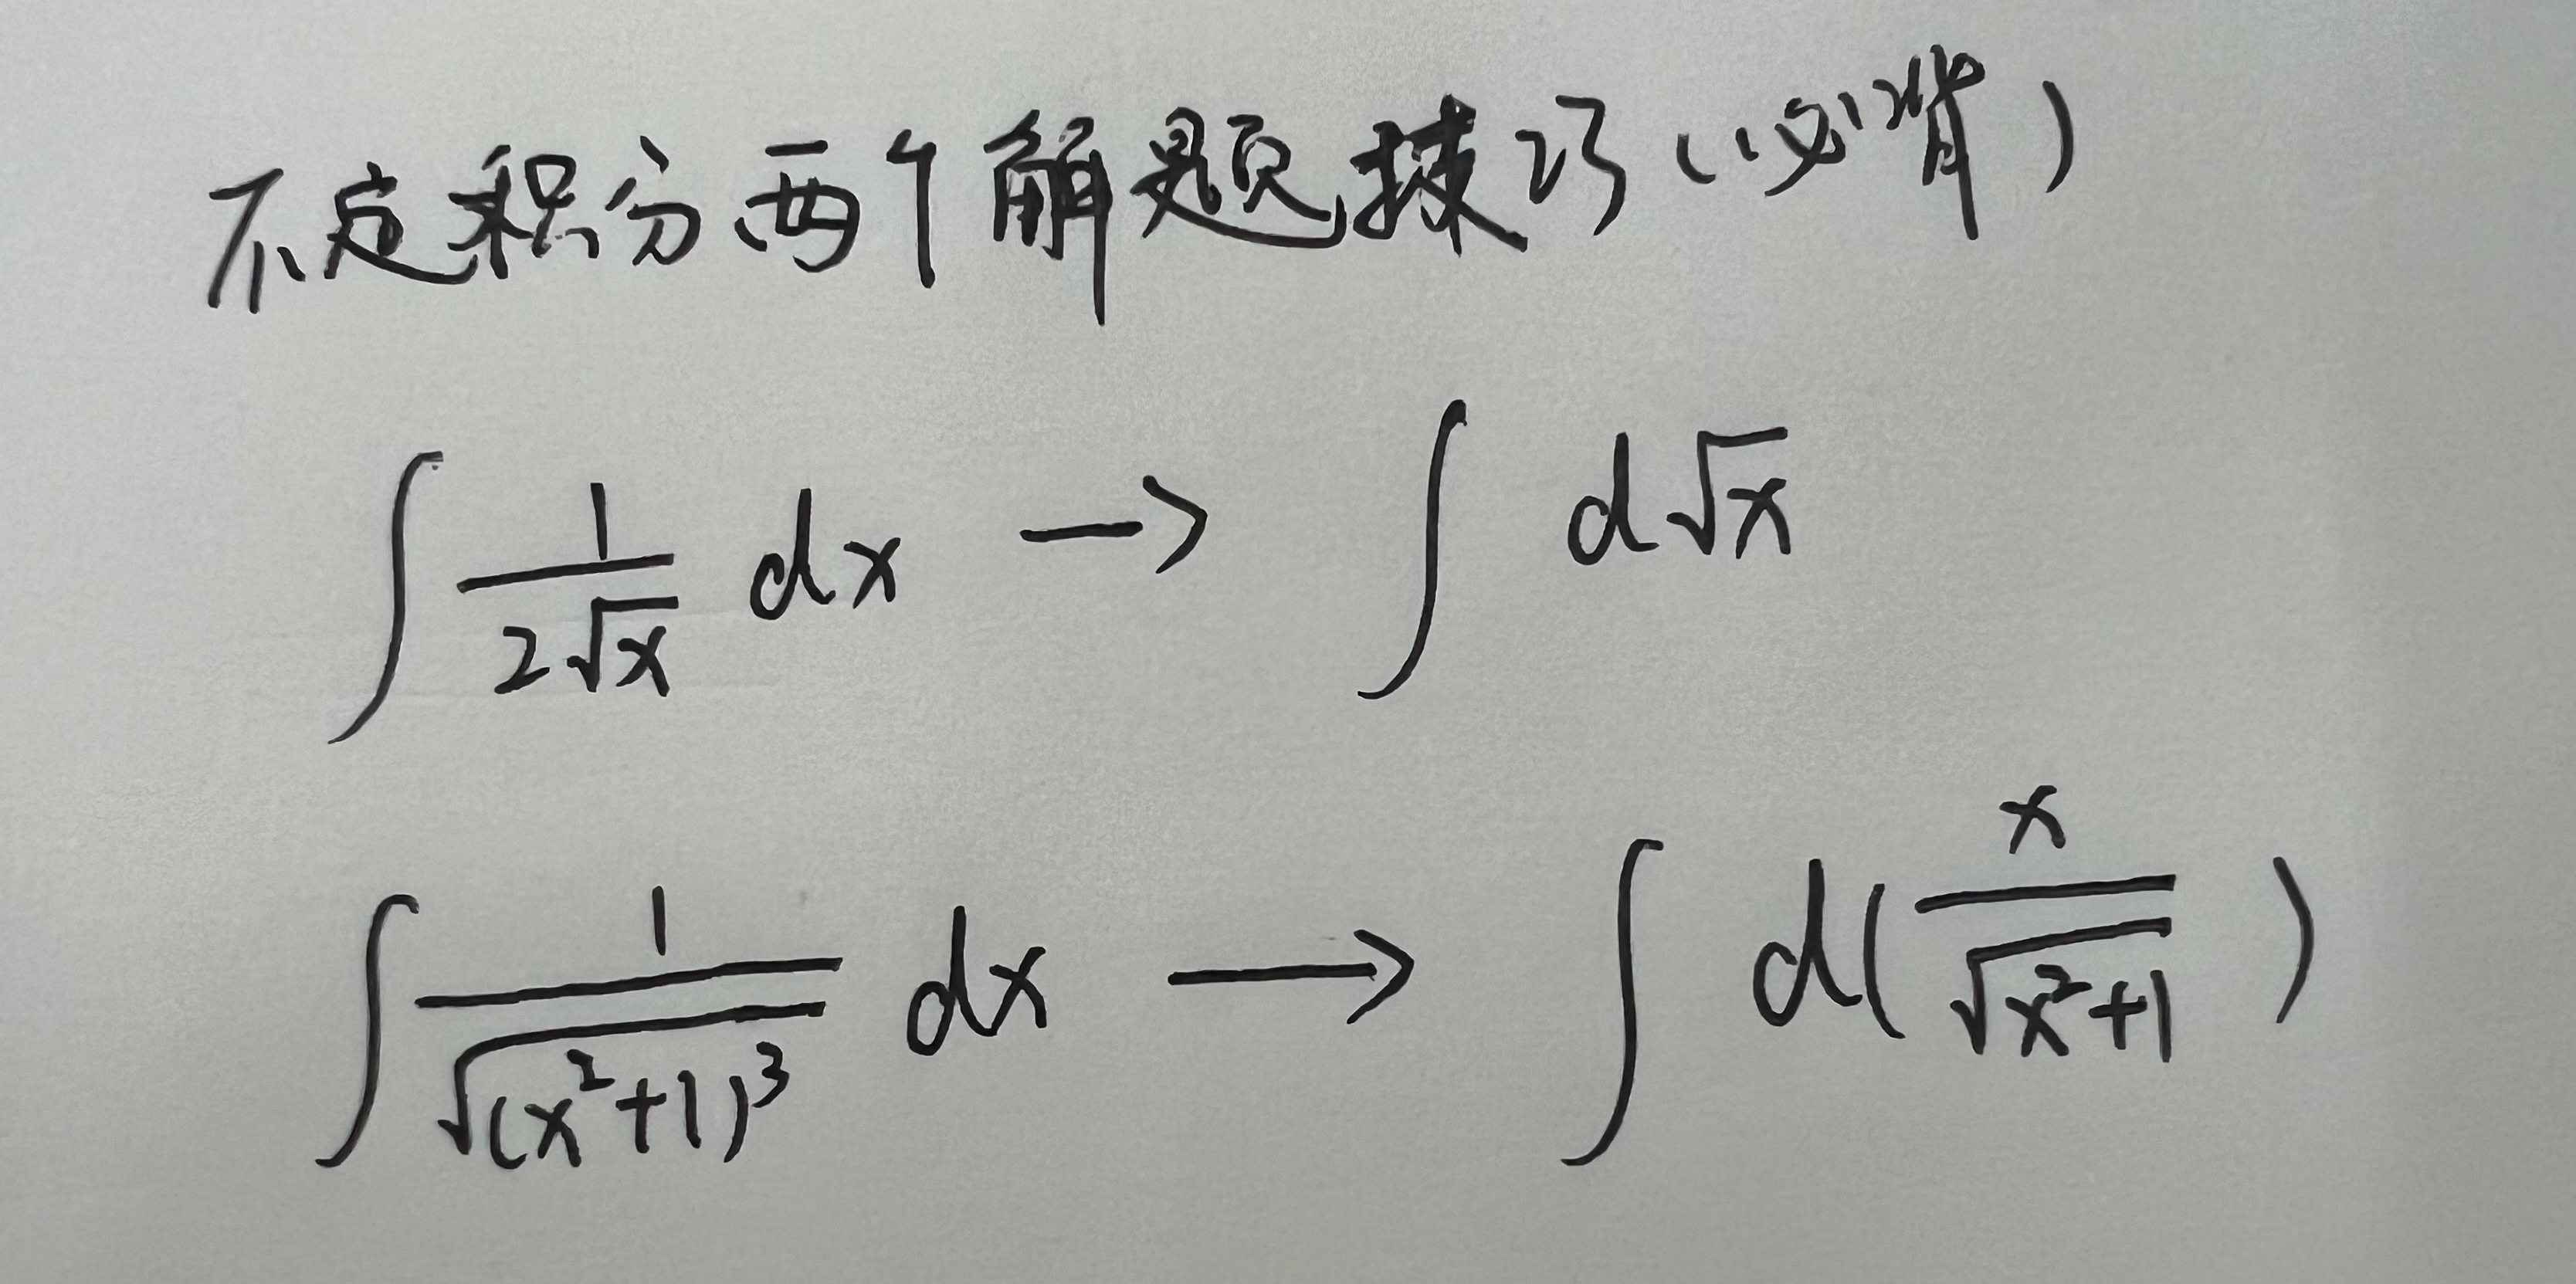 不定积分两个解题技巧（必背）
∫ 1/(2√x) dx → ∫ d√x
∫ 1/√((x²+1)³) dx → ∫ d(x/√(x²+1))